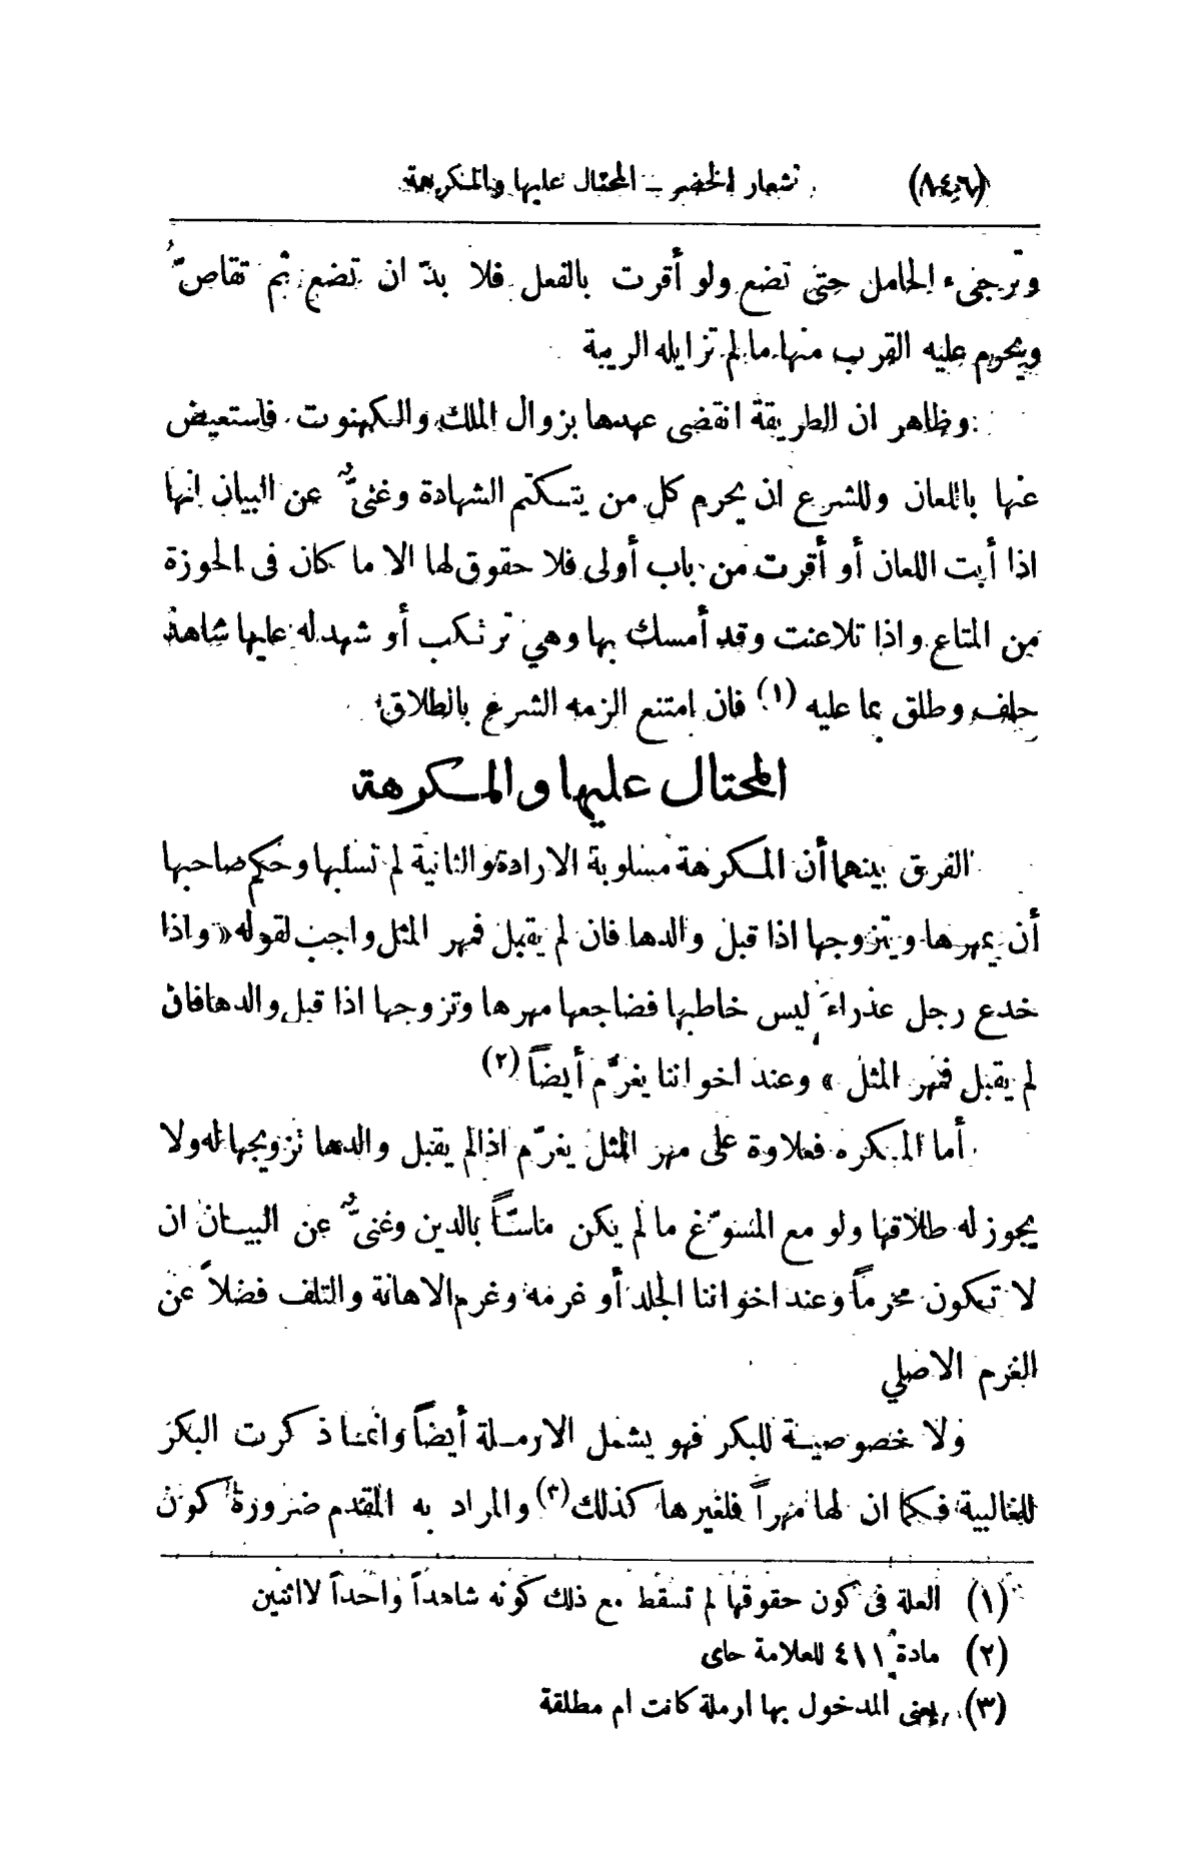 (٨٤٦) شعار الخضر – المحتال عليها والمكرهة
وترجىء الحامل حتى تضع ولو أقرت بالفعل فلا بدّ ان تضع ثم تقاصّ
ويحرم عليه القرب منها ما لم تزايله الريبة
وظاهر ان الطريقة انقضى عهدها بزوال الملك والكهنوت فاستعيض
عنها باللعان وللشرع ان يحرم كل من يتكتم الشهادة وغنىٌّ عن البيان انها
اذا أبت اللعان أو أقرت من باب أولى فلا حقوق لها الا ما كان فى الحوزة
من المتاع واذا تلاعنت وقد أمسك بها وهي ترتكب أو شهد له عليها شاهد
حلف وطلق بما عليه (١) فان امتنع الزمه الشرع بالطلاق
المحتال عليها والمكرهة
الفرق بينهما أن المكرهة مسلوبة الارادة والثانية لم تسلبها وحكم صاحبها
أن يمهرها ويتزوجها اذا قبل والدها فان لم يقبل فمهر المثل واجب لقوله « واذا
خدع رجل عذراءَ ليس خاطبها فضاجعها مهرها وتزوجها اذا قبل والدها فان
لم يقبل فمهر المثل » وعند اخواننا يغرّم أيضاً (٢)
أما المكره فعلاوة على مهر المثل يغرّم اذا لم يقبل والدها تزويجها له ولا
يجوز له طلاقها ولو مع المسوّغ ما لم يكن ماسّاً بالدين وغنىٌّ عن البيان ان
لا تكون محرماً وعند اخواننا الجلد أو غرمه وغرم الاهانة والتلف فضلاً عن
الغرم الاصلي
ولا خصوصية للبكر فهو يشمل الارملة أيضاً وانما ذكرت البكر
للغالبية فكما ان لها مهراً فلغيرها كذلك (٣) والمراد به المقدم ضرورة كون
(١) العلة فى كون حقوقها لم تسقط مع ذلك كونه شاهداً واحداً لا اثنين
(٢) مادة ٤١١ للعلامة حاى
(٣) يعنى المدخول بها ارملة كانت ام مطلقة